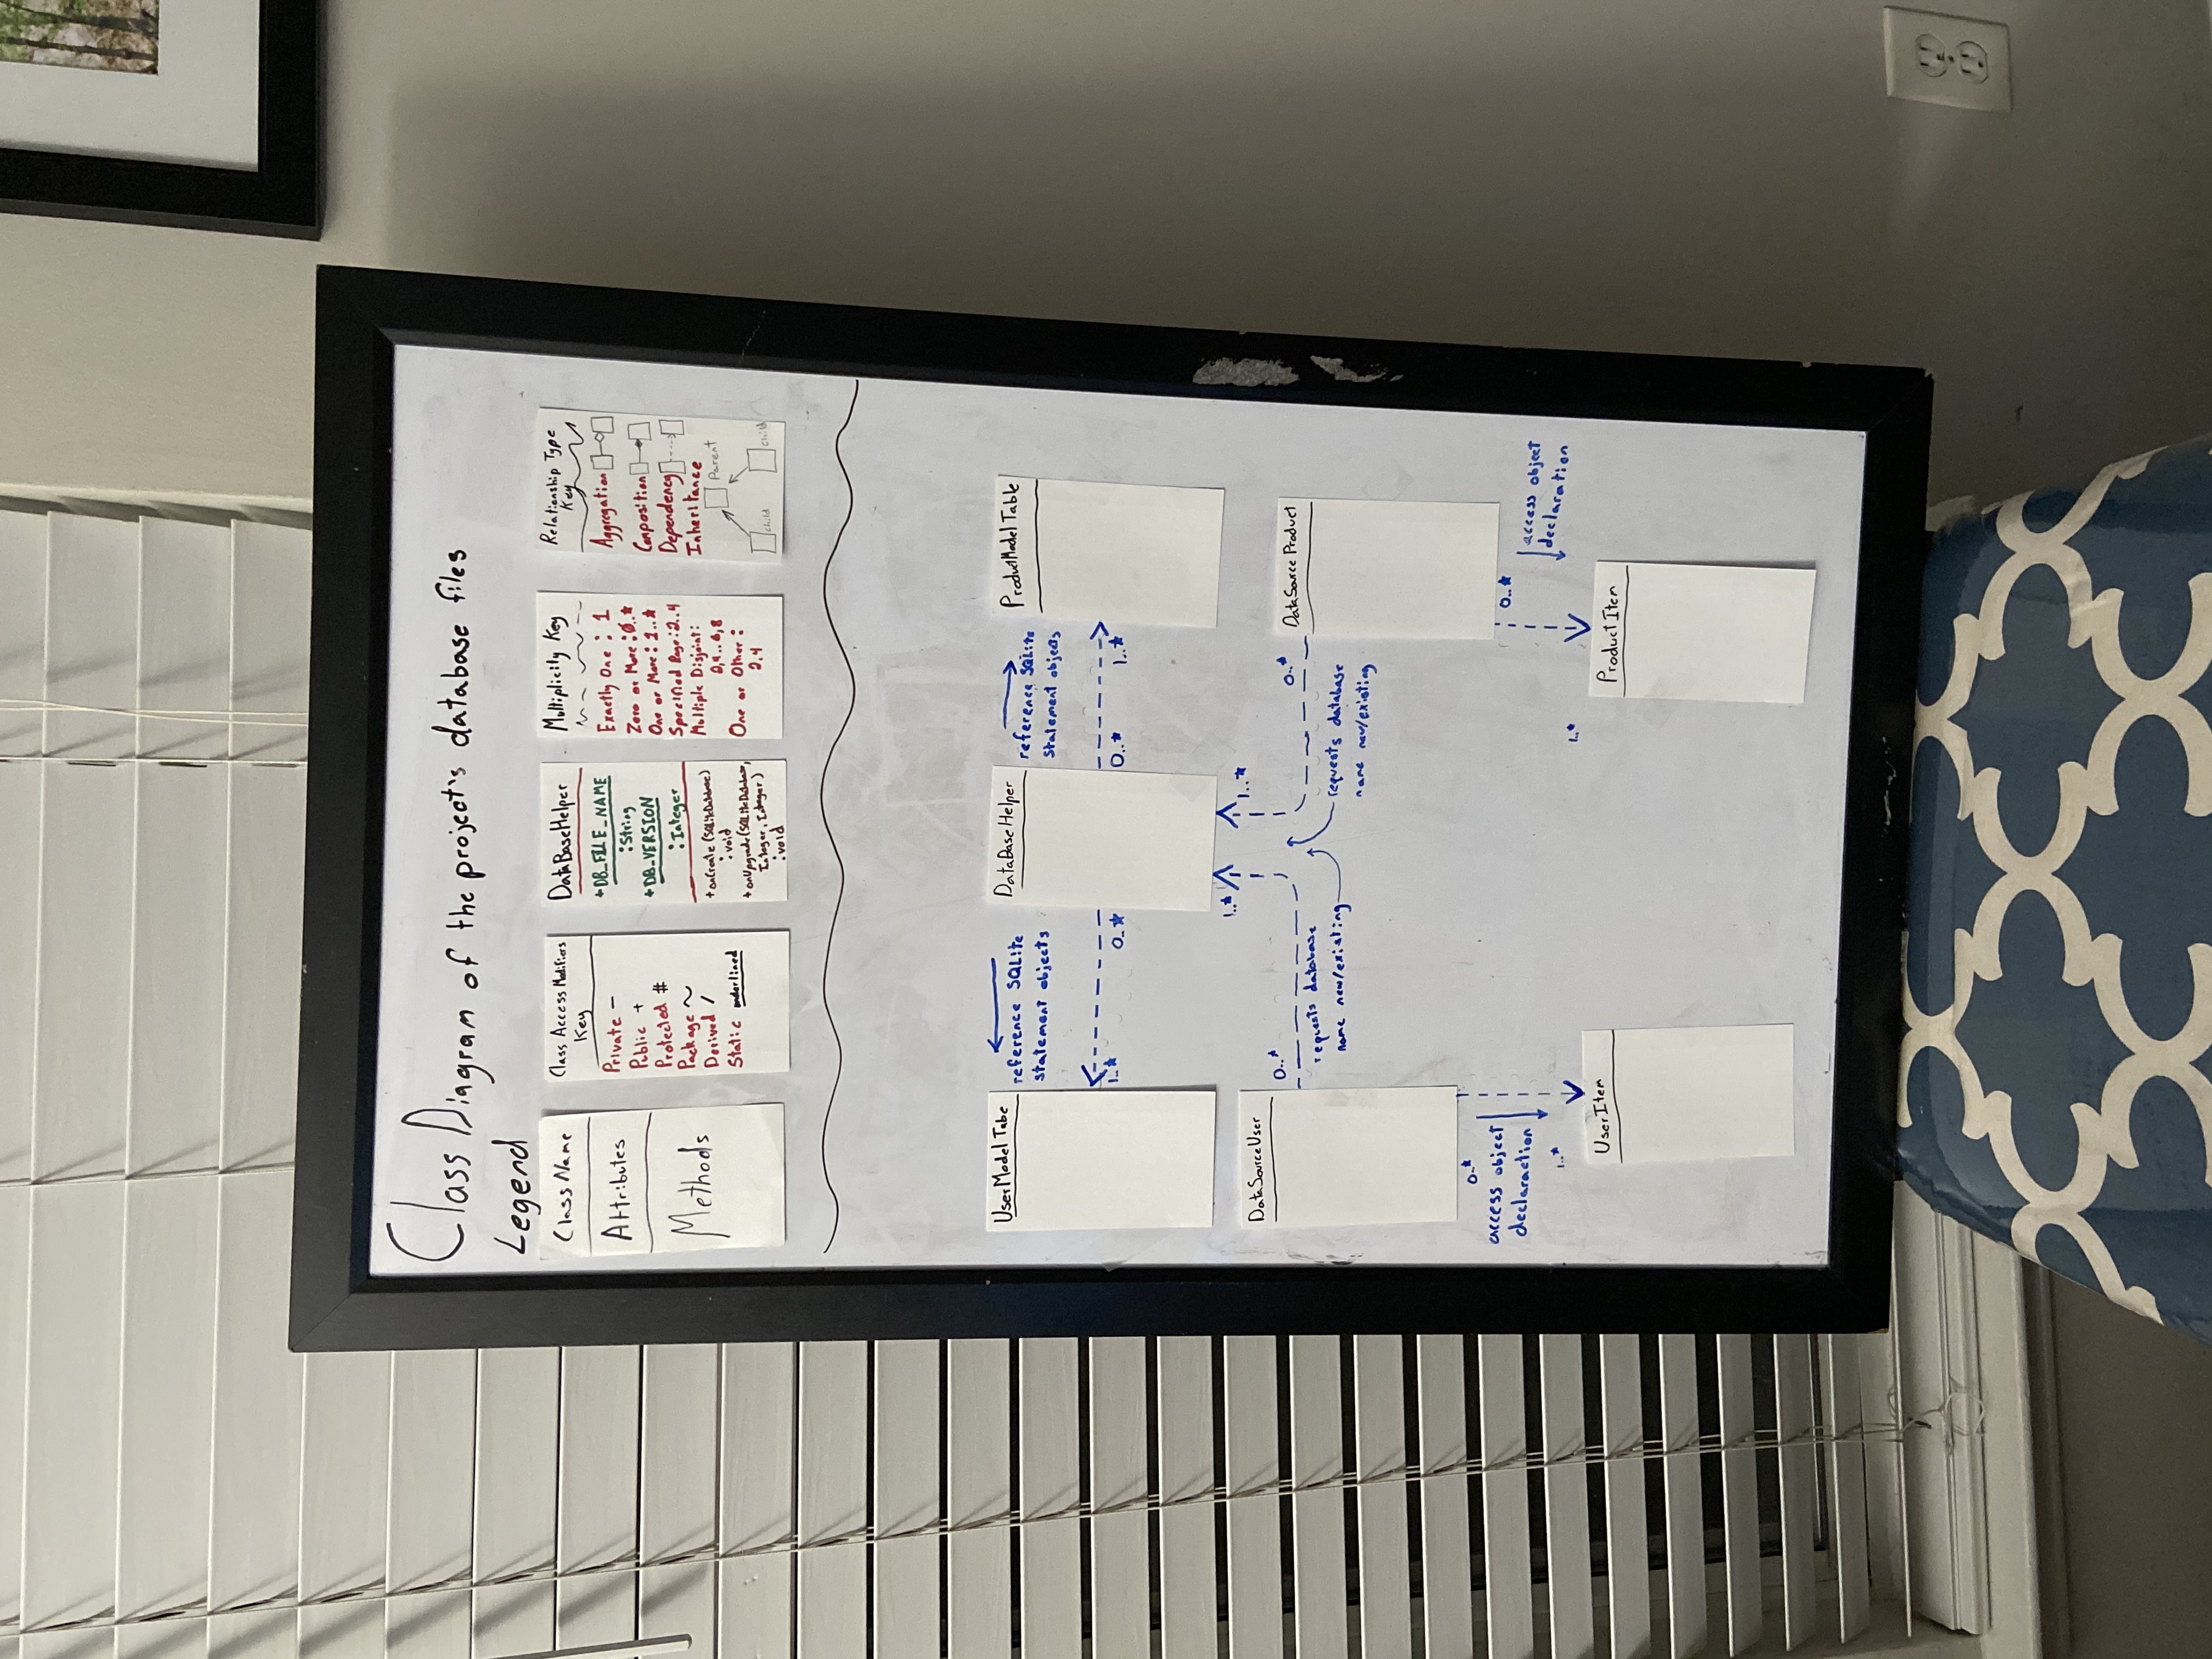 Class Diagram of the project's database files
Legend
Class Name
Attributes
Methods
Class Access Modifiers
Key
Private -
Public +
Protected #
Package ~
Derived /
Static underlined
DataBaseHelper
+DB_FILE_NAME
:String
+DB_VERSION
:Integer
+onCreate(SQLiteDatabase)
:void
+onUpgrade(SQLiteDatabase,
Integer, Integer)
:void
Multiplicity Key
Exactly One : 1
Zero or More : 0..*
One or More : 1..*
Specified Rage: 2..4
Multiple Disjoint:
2,4..6,8
One or Other :
2,4
Relationship Type
Key
Aggregation
Composition
Dependency
Inheritance
Parent
child
child
UserModel Tabe
reference SQLite
statement objects
1..*
0..*
DataBaseHelper
reference SQLite
statement objects
0..*
1..*
ProductModel Table
1..*
1..*
DataSourceUser
0..*
requests database
name new/existing
0..*
requests database
name new/existing
DataSource Product
0..*
access object
declaraction
1..*
0..*
access object
declaration
1..*
UserItem
Product Item